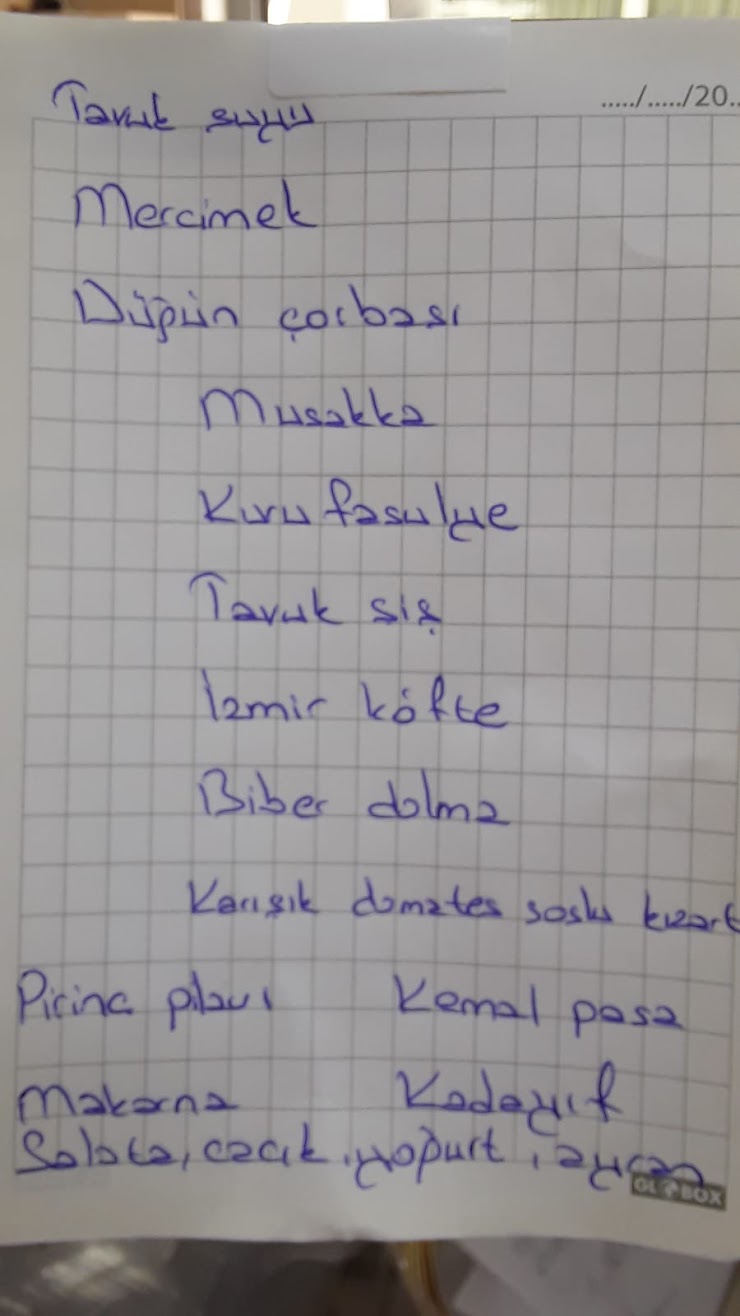 ...../...../20..
Tavuk suyu
Mercimek
Düğün çorbası
Musakka
Kuru fasulye
Tavuk şiş
İzmir köfte
Biber dolma
Karışık domates soslu kızart
Pirinc pilavı Kemal paşa
Makarna Kadayıf
Salata, cacık, yoğurt, ayran